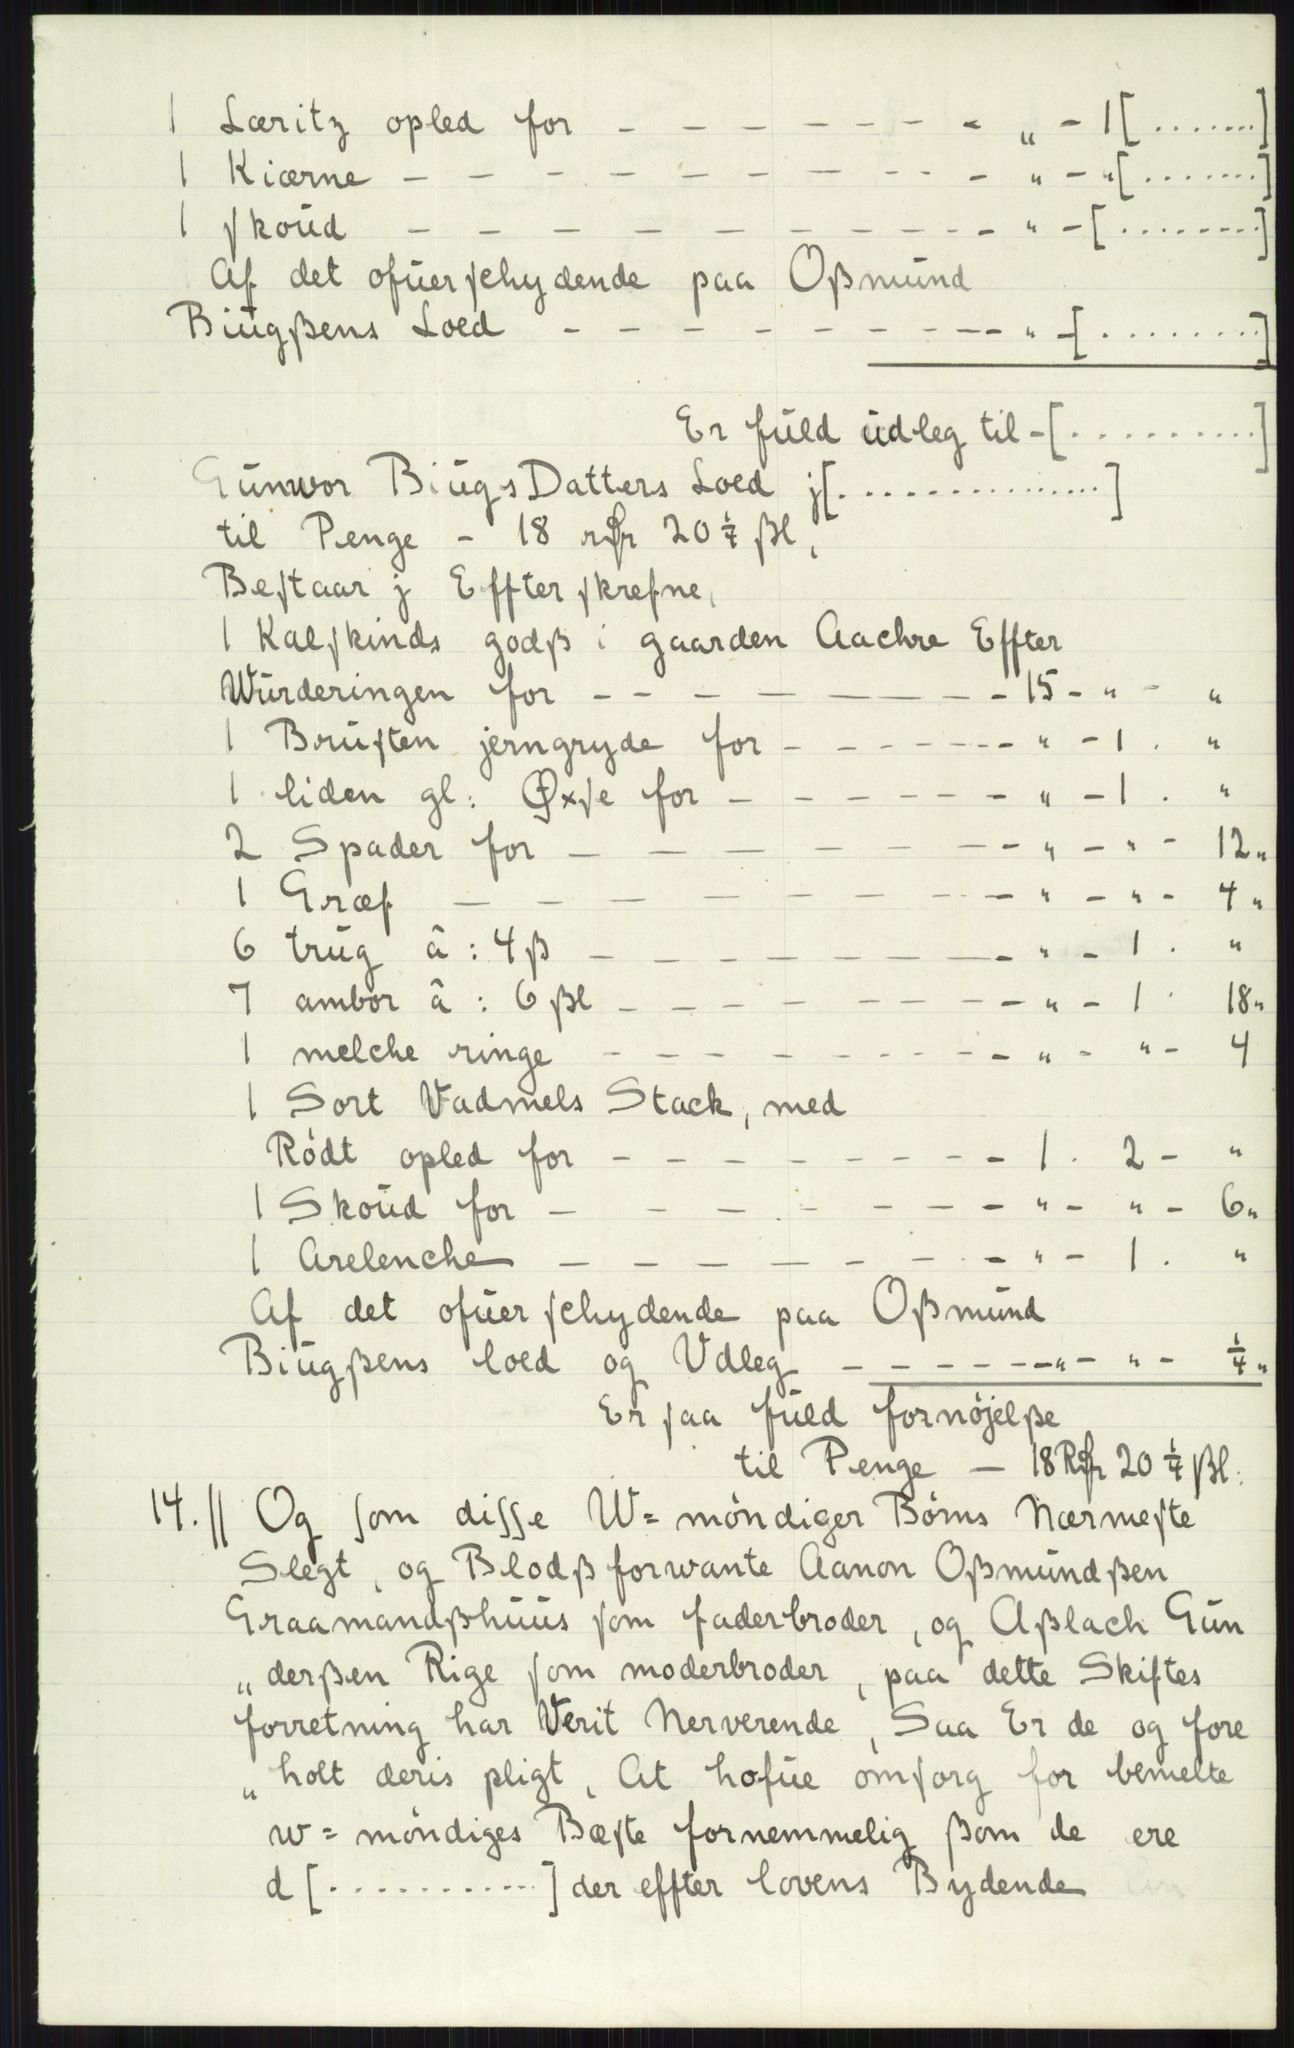 1 Læritz opled for - - - - - - - - „ - 1 [ . . . . . . . ]
1 Kiærne - - - - - - - - - - - „ - „ [ . . . . . . . ]
1 ſkoŭd - - - - - - - - - - - „ - [ . . . . . . . . ]
Af det ofŭerſchydende paa Oßmŭnd
Biŭgßens Loed - - - - - - - - - „ - [ . . . . . . . . ]
Er fŭld ŭdleg til - [ . . . . . . . . . . ]
Gŭnwor BiŭgsDatters Loed j [ . . . . . . . . . . . . . . . ]
til Penge - 18 rdr 20 1/4 ßl,
Beſtaar j Effterſkrefne,
1 Kalſkinds godß i gaarden Aachre Effter
Wŭrderingen for - - - - - - - 15 - „ - „
1 Brŭſten jerngryde for - - - - - - - „ - 1 . „
1 liden gl: Øxſe for - - - - - - - „ - 1 . „
2 Spader for - - - - - - - - - „ - „ - 12 „
1 Græf - - - - - - - - - - „ - „ - 4 „
6 trŭg â : 4 ß - - - - - - - - - „ - 1 . „
7 ambor â : 6 ßl - - - - - - - - - „ - 1 . 18 „
1 melche ringe - - - - - - - - - - „ - „ - 4
1 Sort Vadmels Stack, med
Rödt opled for - - - - - - - - - 1 . 2 - „
1 Skoŭd for - - - - - - - - - „ - „ - 6 „
1 Arelenche - - - - - - - - - „ - 1 . „
Af det ofŭerſchydende paa Oßmŭnd
Biŭgßens loed og Vdleg - - - - - - - „ - „ - 1/4 „
Er ſaa fŭld fornöjelße
til Penge - 18 Rdr 20 1/4 ßl:
14. // Og ſom diſſe W= möndiger Börns Nærmeſte
Slegt, og Blodßforwante Aanon Oßmŭndßen
Graamandßhŭŭs ſom faderbroder, og Aßlach Gŭn
„ derßen Rige ſom moderbroder, paa dette Skiftes
forretning har Verit Nerverende, Saa Er de og fore
„ holt deris pligt, At hafŭe omſorg for bemelte
w= möndiges Bæſte fornemmelig ßom de ere
d [ . . . . . . . . . . . . ] der effter lovens Bydende